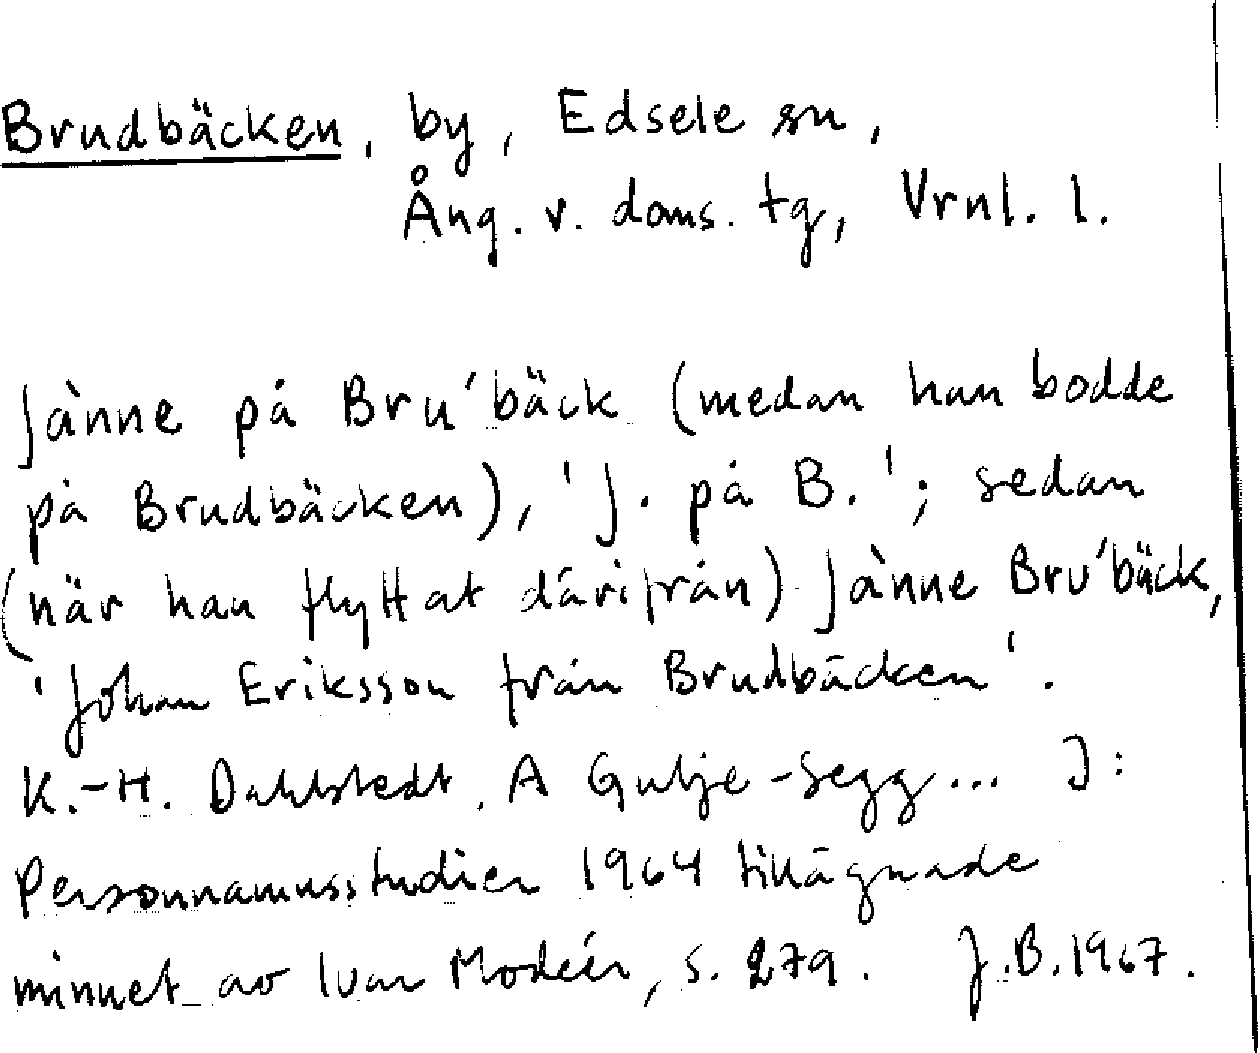 Brudbäcken, by, Edsele sn,
Ång. v. doms. tg, Vrnl. l.
Jànne på Bru´bäck (medan han bodde
på Brudbäcken), 'J. på B.'; sedan
(när han flyttat därifrån) Jànne Bru´bäck,
'Johan Eriksson från Brudbäcken'.
K.-H. Dahlstedt, A Gubje-Segg... I:
Personnamnsstudier 1964 tillägnade
minnet av Ivar Modéer, s. 279. J.B. 1967.